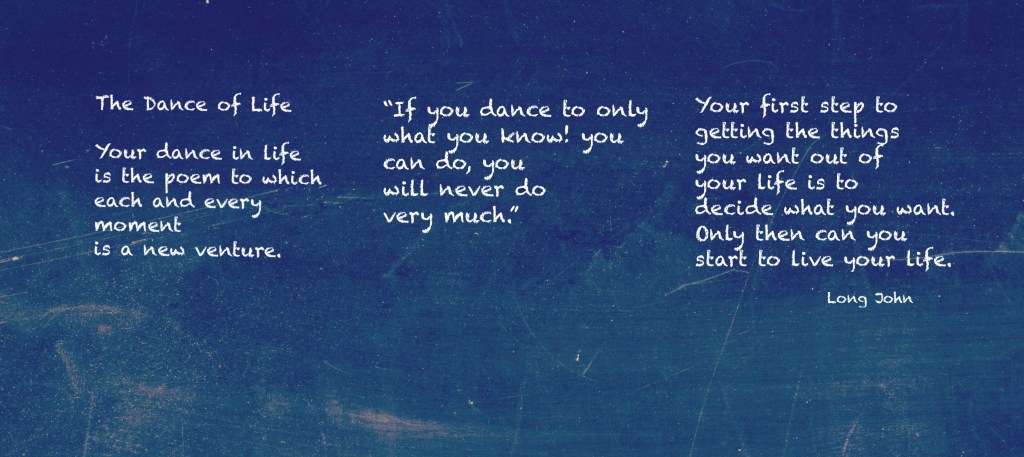 The Dance of Life
Your dance in life
is the poem to which
each and every
moment
is a new venture.
“If you dance to only
what you know! you
can do, you
will never do
very much.”
Your first step to
getting the things
you want out of
your life is to
decide what you want.
Only then can you
start to live your life.
Long John